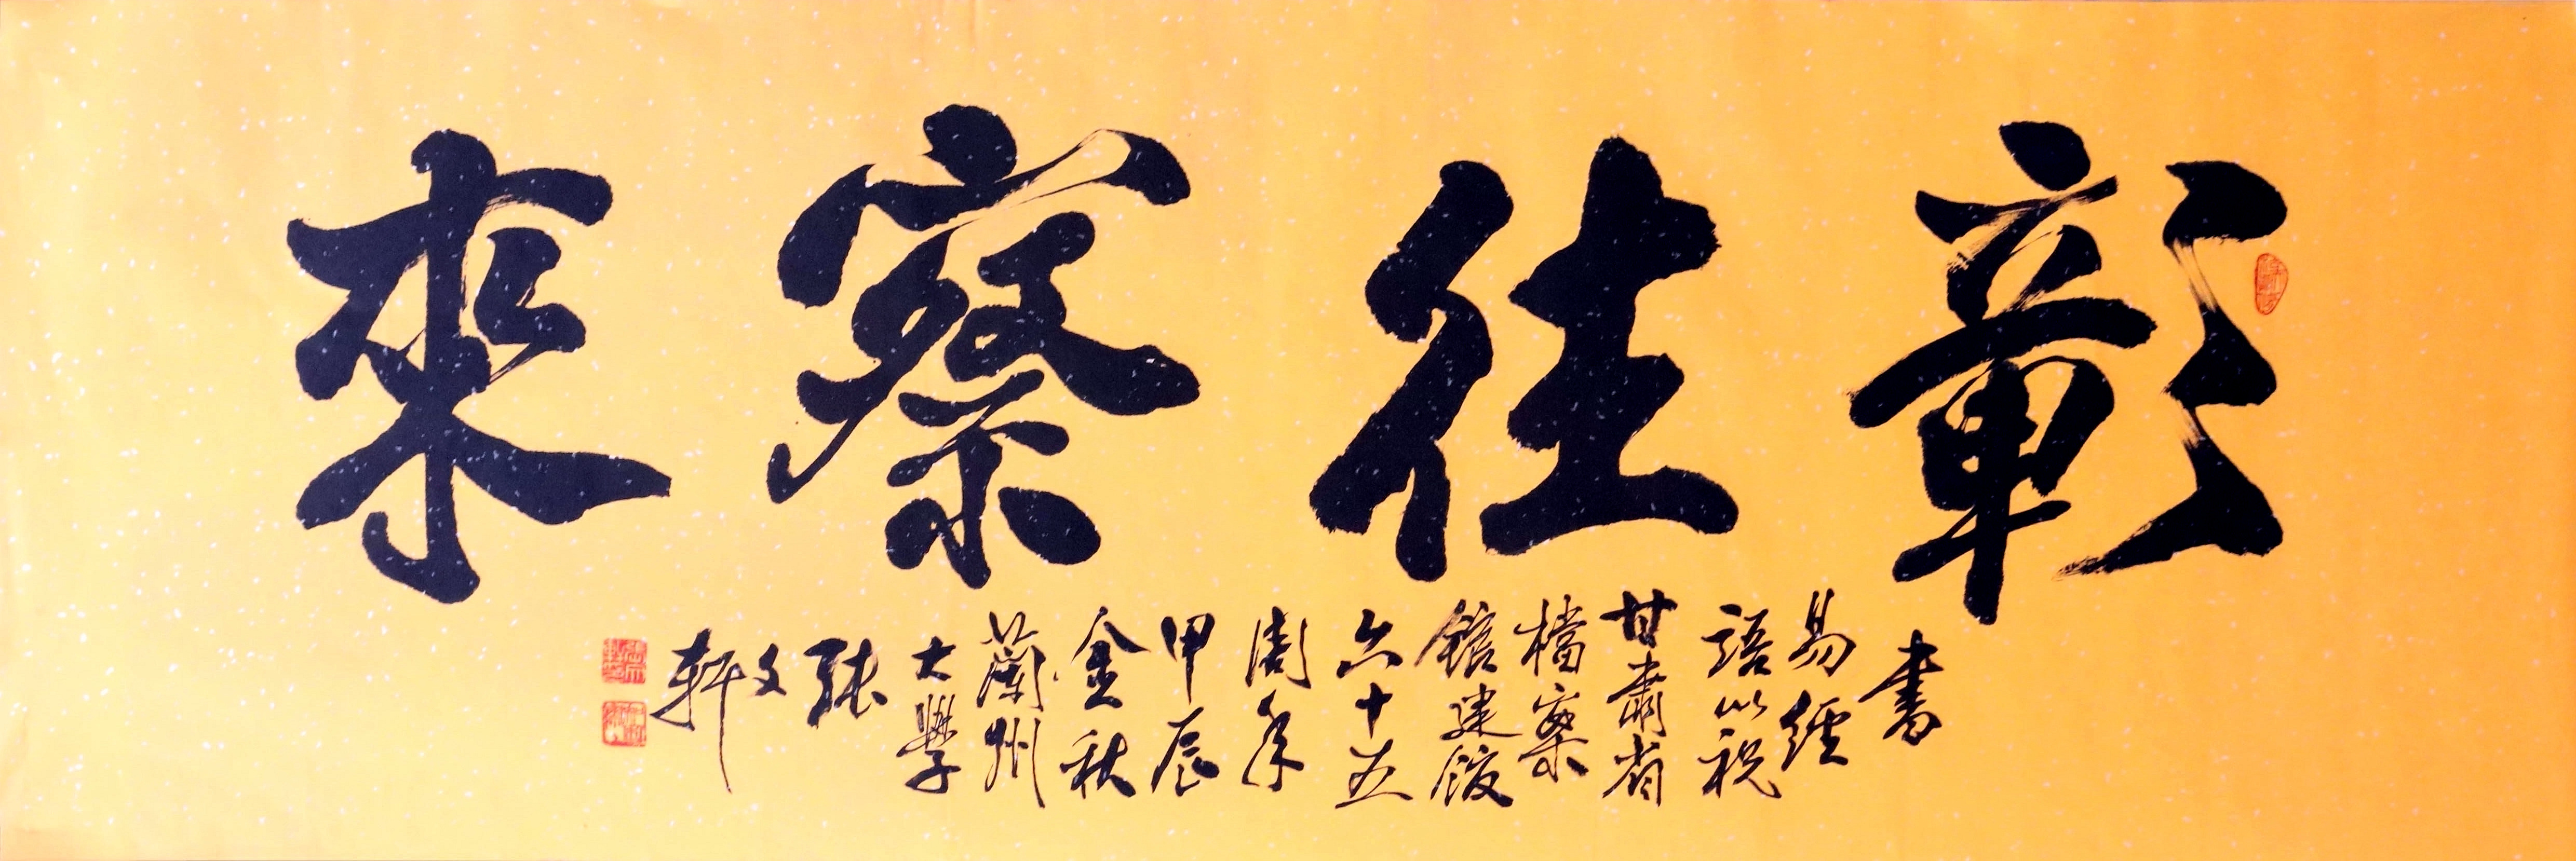 彰往察來
書
易經
語以祝
甘肅省
檔案
館建館
六十五
周年
甲辰
金秋
蘭州
大學
張
文
軒